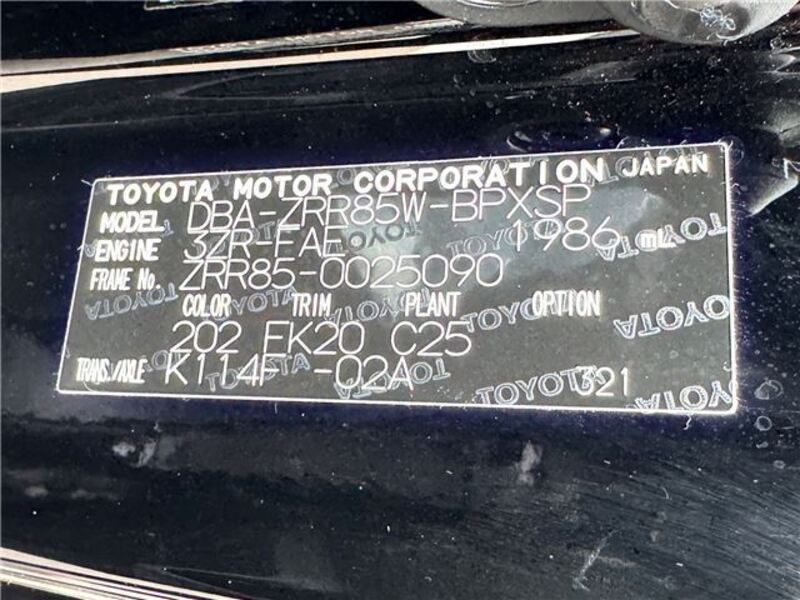 TOYOTA MOTOR CORPORATION JAPAN
MODEL DBA-ZRR85W-BPXSP
ENGINE 3ZR-FAE 1986 ml
FRAME No. ZRR85-0025090
COLOR TRIM PLANT OPTION
202 FK20 C25
TRANS./AXLE K114F -02A 321